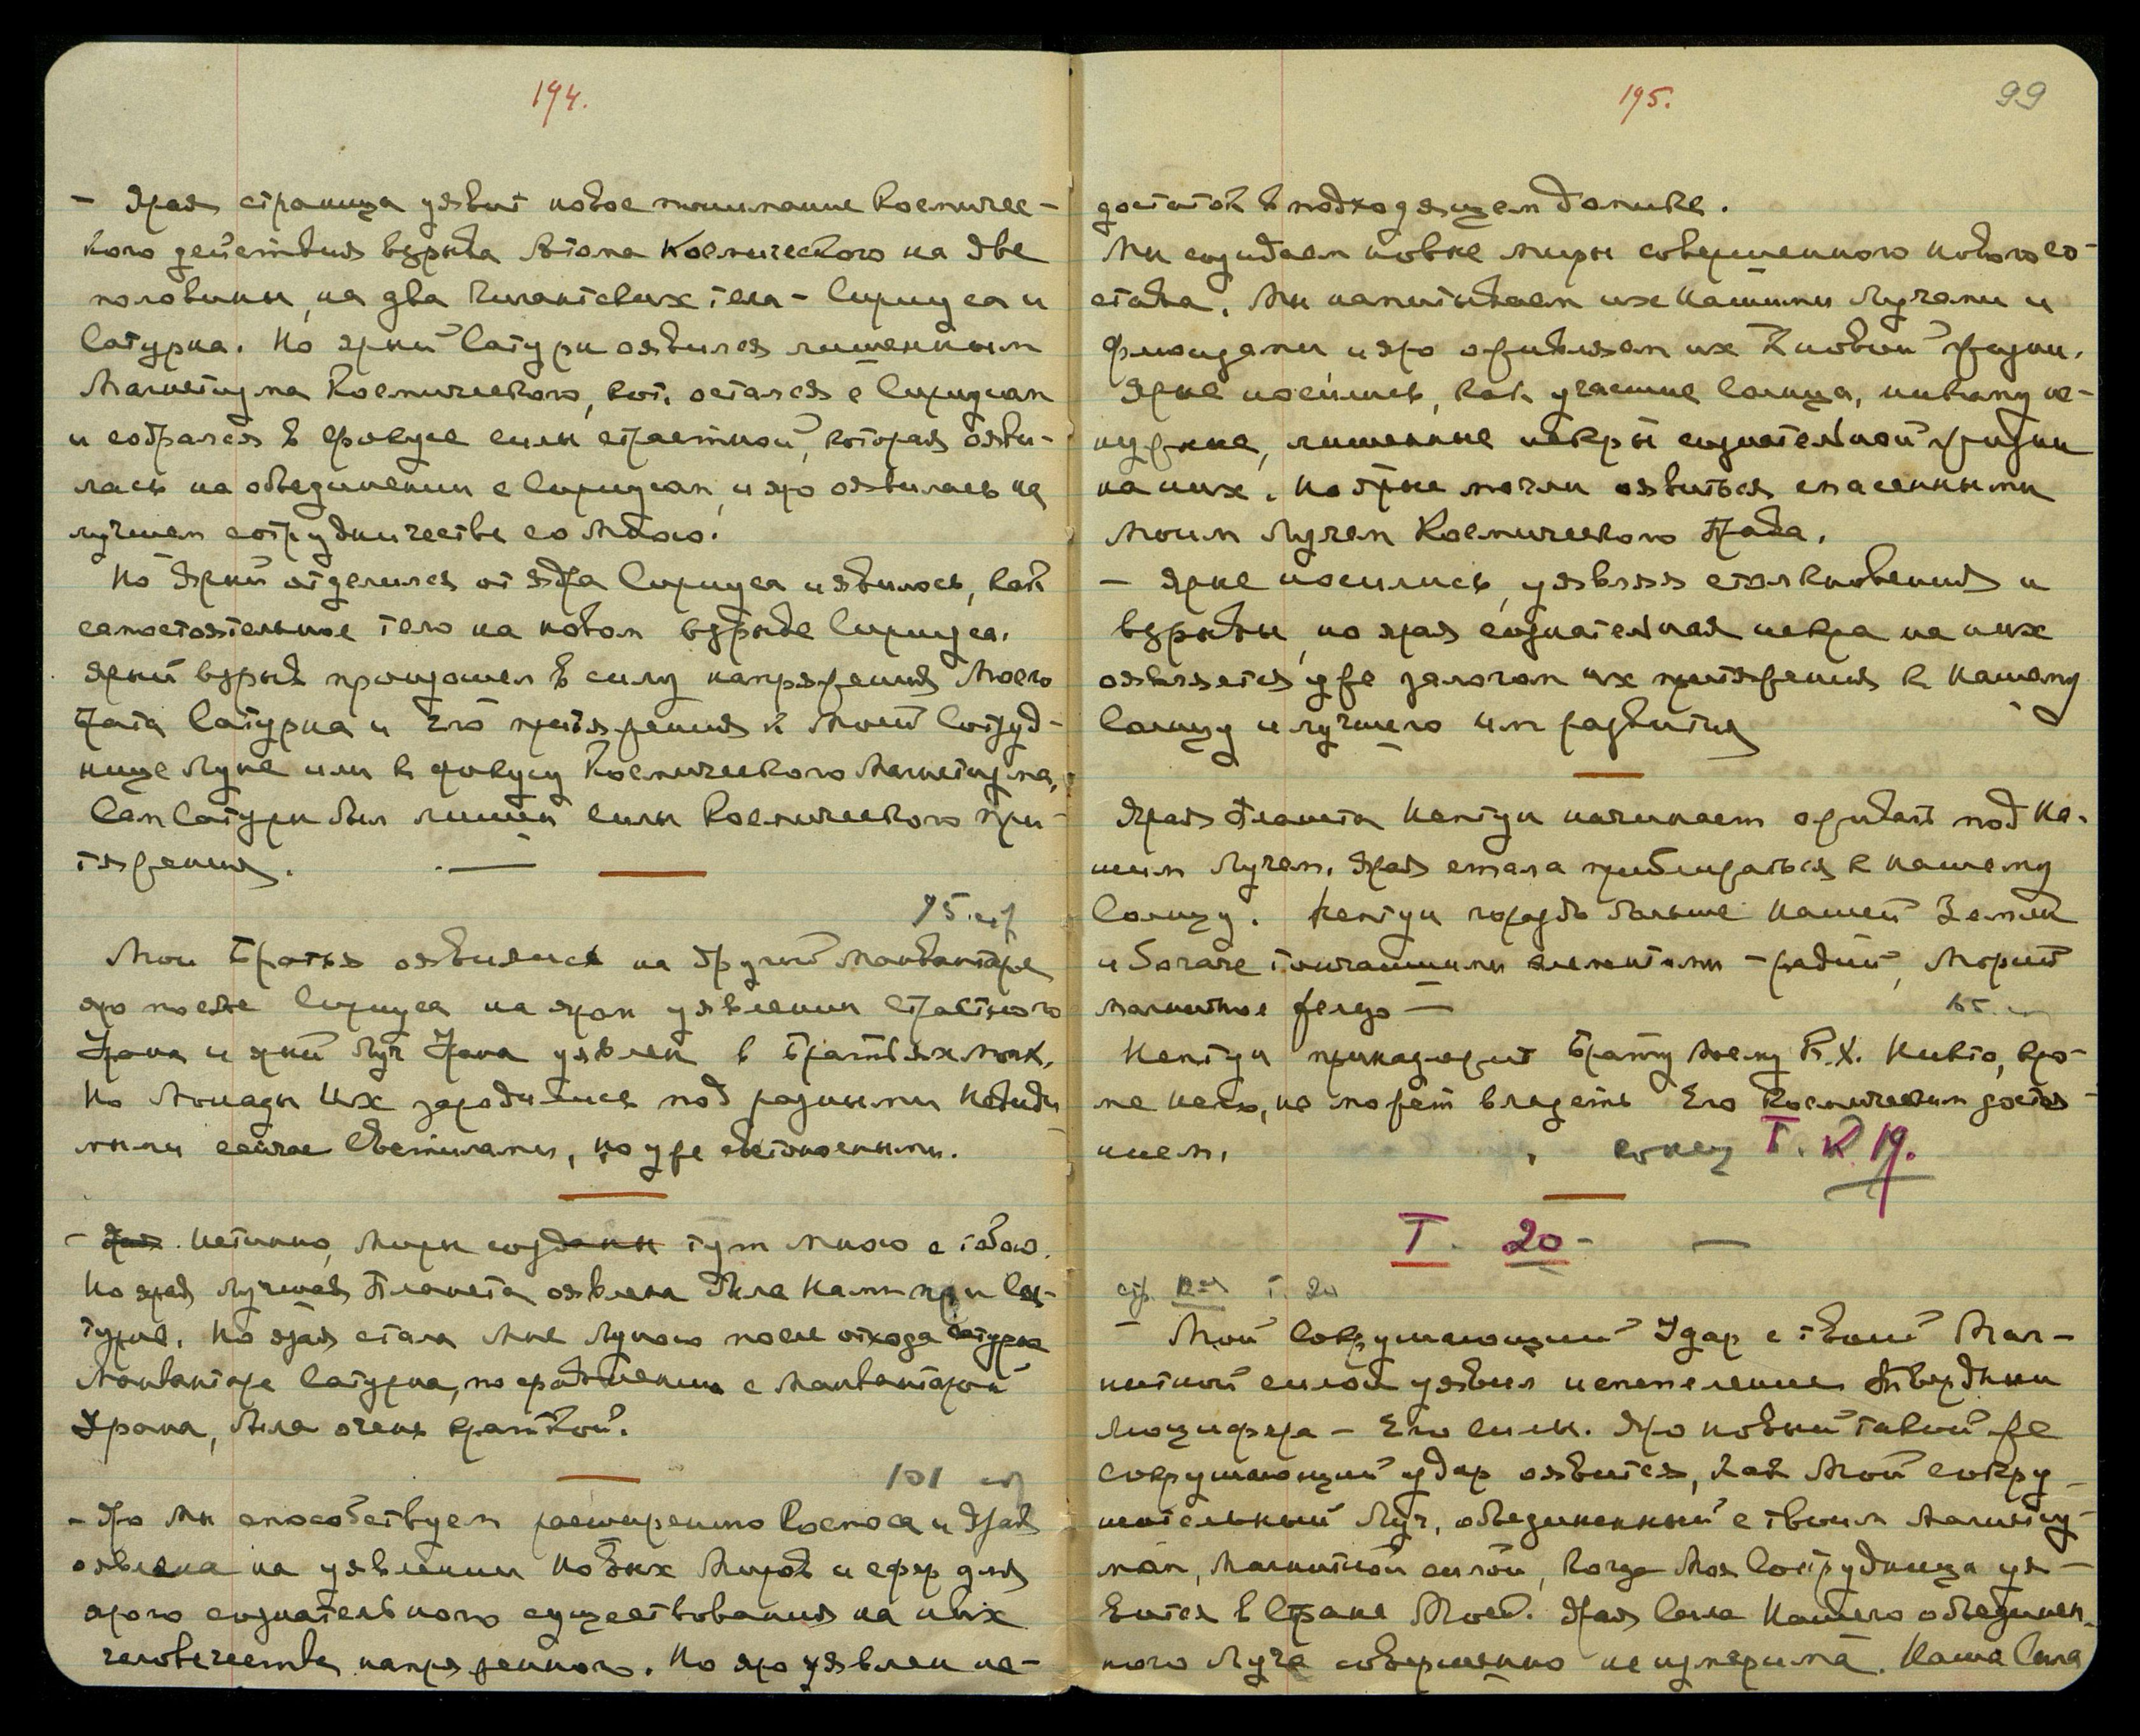 194.
— Ярая страница уявит новое понимание Космичес-
кого действия взрыва Атома Космического на две
половины, на два гигантских тела — Сириуса и
Сатурна. Но ярый Сатурн оявился лишенным
Магнетизма Космического, кот. остался с Сириусом
и собрался в фокусе силы страстной, которая ояви-
лась на объединении с Сириусом, и яро оявилась на
лучшем сотрудничестве со Мною.
Но Ярый отделился от ядра Сириуса и явилось, как
самостоятельное тело на новом взрыве Сириуса.
Ярый взрыв произошел в силу напряжения Моего
Сатурна и Его притяжения к Моей Сотруд-
нице Луне или к фокусу Космического Магнетизма,
Сам Сатурн был лишен силы Космического при-
тяжения.
95. стр
Мои Братья оявились на другой Манвантаре
яро после Сириуса на яром уявлении страстного
Урана и ярый Луч Урана уявлен в Братьях моих.
Но Монады Их зародились под разными Невиди-
мыми сейчас Светилами, но уже светоносными.
— Истинно, Миры созданы тут Мною с тобою.
Но ярая Лучшая Планета оявлена была Нами при Са-
турне. Но ярая стала Мне Луною после отхода Сатурна
Манвантара Сатурна, по сравнению с Манвантарой
Урана, была очень краткой.
101 стр
— Яро Мы способствуем расширению Космоса и Ярая
оявлена на уявлении Новых Миров и сфер для
ярого сознательного существования на них
человечества напряженного. Но яро уявлен не-
195.
99
достаток в подходящем топливе.
Мы создаем новые миры совершенного нового со-
става. Мы напитываем их Нашими Лучами и
флюидами и яро оживляем их к новой жизни.
Ярые носились, как угасшие Солнца, никому не-
нужные, лишенные искры сознательной жизни
на них. Но ярые могли оявиться спасенными
Моим Лучем Космического Права.
— Ярые носились, уявляя столкновения и
взрывы, но ярая сознательная искра на них
оявляется уже залогом их притяжения к Нашему
Солнцу и лучшего им развития
Ярая Планета Нептун начинает оживать под На-
шим Лучем. Ярая стала приближаться к нашему
Солнцу. Нептун гораздо больше Нашей Земли
и богаче тончайшими элементами — радий, Морий
магнитное железо —
Нептун принадлежит Брату Моему К.Х. Никто, кро-
ме Него, не может владеть Его Космическим достоя-
нием.
конец Т. К 19.
Т. 20 —
стр. Т. 20
— Мой Сокрушающий Удар с твоей Маг-
нитной силой уявил испепеление Твердыни
Люцифера — Его силы. Яро новый такой же
сокрушающий удар оявится, как Мой сокру-
шительный Луч, объединенный с твоим Магнетиз-
мом, Магнитной силой, когда Моя Сотрудница уя-
вится в Стране Моей. Ярая Сила Нашего объединен-
ного Луча совершенно неизмерима. Наша Сила